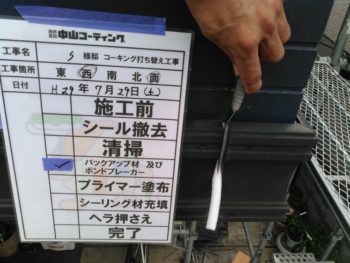 株式会社 中山コーティング
工事名 S 様邸 コーキング打ち替え工事
工事箇所 東 西 南 北 面
日付 H29年7月29日(土)
施工前
シール撤去
清掃
✓ バックアップ材 及び
ボンドブレーカー
プライマー塗布
シーリング材充填
ヘラ押さえ
完了